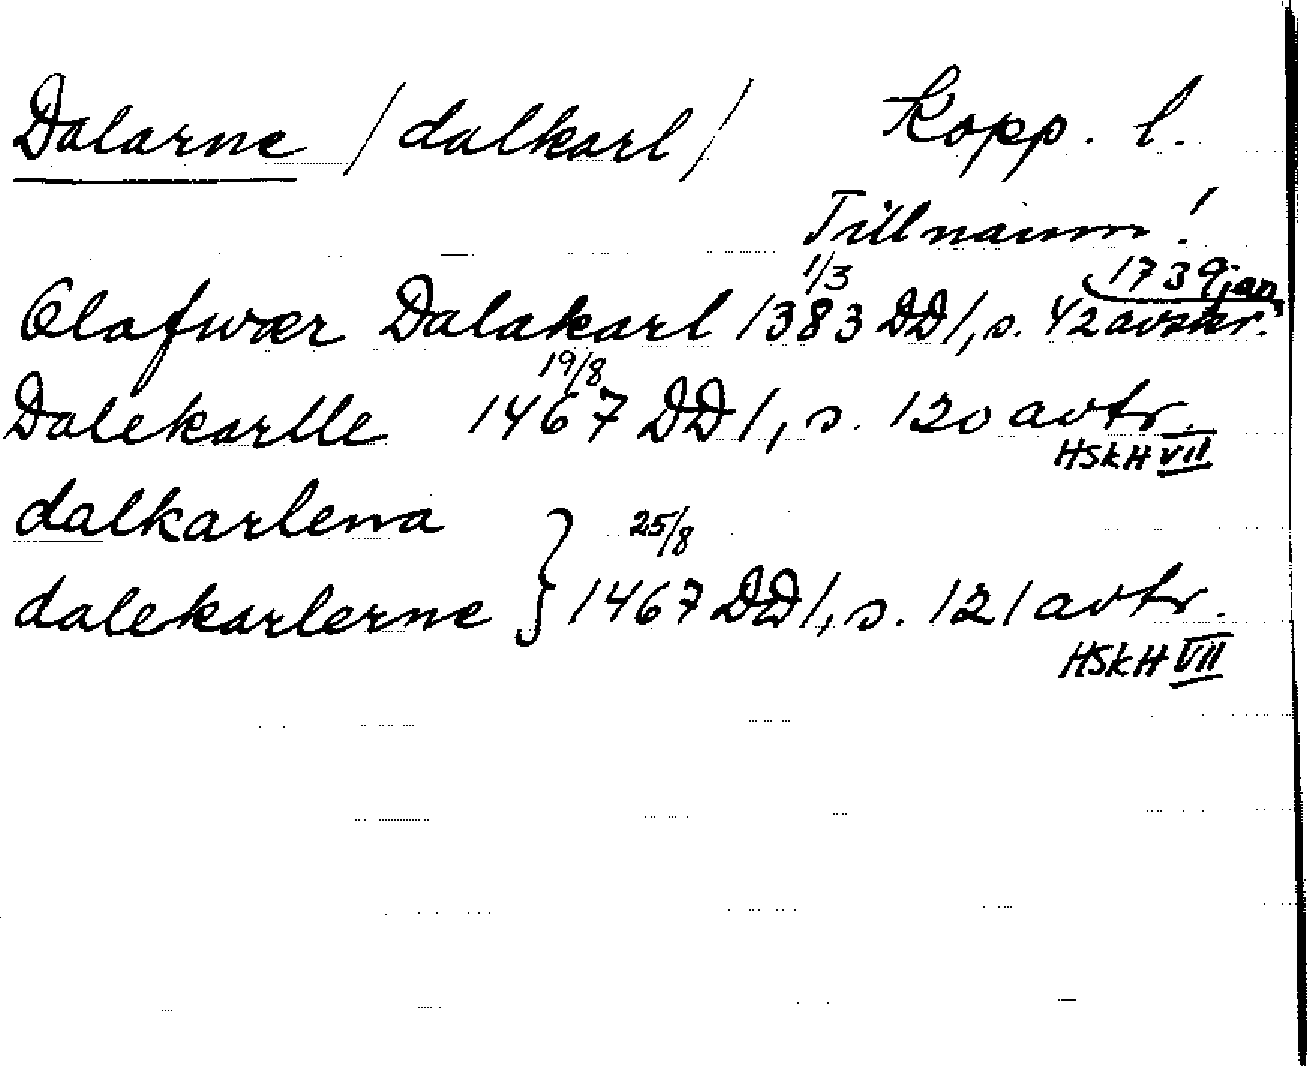 Dalarne /dalkarl/ Kopp. l.
Tillnamn!
Olafwær Dalakarl 1/3 1383 DD 1, s. 42 avskr. 1739 jan
Dalekarlle 19/8 1467 DD 1, s. 120 avtr.
HSkH VII
dalkarlena
dalekarlerne } 25/8 1467 DD 1, s. 121 avtr.
HSkH VII